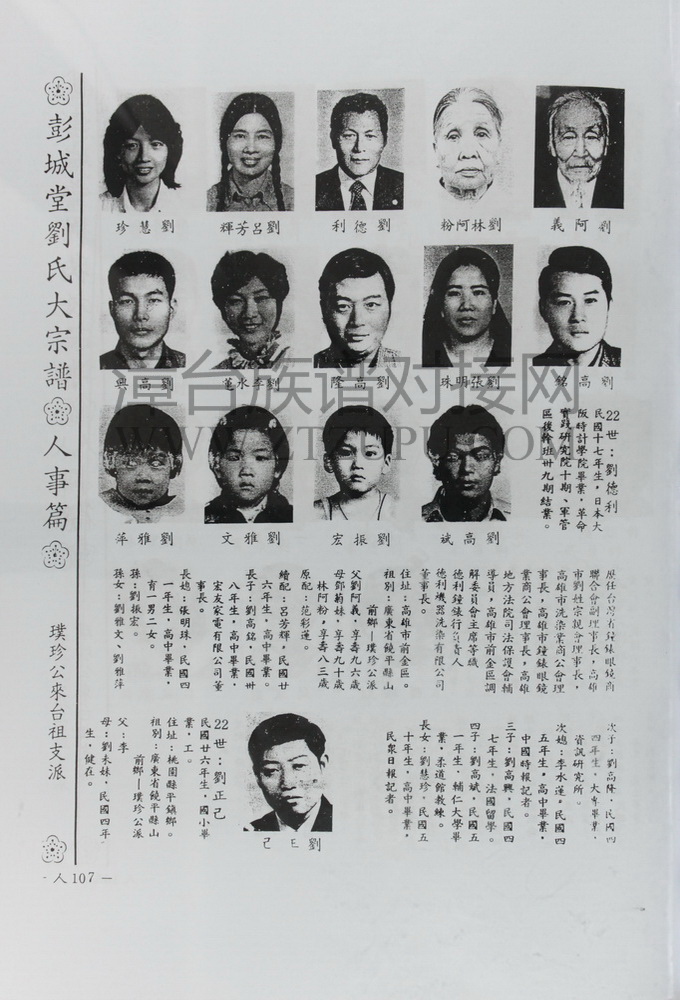 彭城堂劉氏大宗譜
人事篇
璞珍公來台祖支派
人107
劉阿義
劉林阿粉
劉德利
劉呂芳輝
劉慧珍
劉高銘
劉張明珠
劉高隆
劉李水蓮
劉高興
22世：劉德利
民國十七年生，日本大
阪時計學院畢業，革命
實踐研究院十期、軍管
區後幹班卅九期結業。
劉高斌
劉振宏
劉雅文
劉雅萍
歷任台灣省鐘錶眼鏡商
聯合會副理事長，高雄
市劉姓宗親會理事長，
高雄市洗染業商公會理
事長，高雄市鐘錶眼鏡
業商公會理事長，高雄
地方法院司法保護會輔
導員，高雄市前金區調
解委員會主席等職
德利鐘錶行負責人
德利機器洗染有限公司
董事長。
住址：高雄市前金區。
祖別：廣東省饒平縣山
前鄉—璞珍公派
父劉阿義，享壽九六歲
母鄧菊妹，享壽九十歲
林阿粉，享壽八三歲
原配：范彩蓮。
續配：呂芳輝，民國廿
六年生，高中畢業。
長子：劉高銘，民國卅
八年生，高中畢業，
宏友家電有限公司董
事長。
長媳：張明珠，民國四
一年生，高中畢業，
育一男二女。
孫：劉振宏。
孫女：劉雅文、劉雅萍
次子：劉高隆，民國四
四年生，大專畢業，
資訊研究所。
次媳：李水蓮，民國四
五年生，高中畢業，
中國時報記者。
三子：劉高興，民國四
七年生，法國留學。
四子：劉高斌，民國五
一年生，輔仁大學畢
業，柔道館教練。
長女：劉慧珍，民國五
十年生，高中畢業，
民眾日報記者。
劉正己
22世：劉正己
民國廿六年生，國小畢
業，工。
住址：桃園縣平鎮鄉。
祖別：廣東省饒平縣山
前鄉—璞珍公派
父：李
母：劉未妹，民國四年
生，健在。
漳台族谱对接网
WWW.ZTZUPU.COM